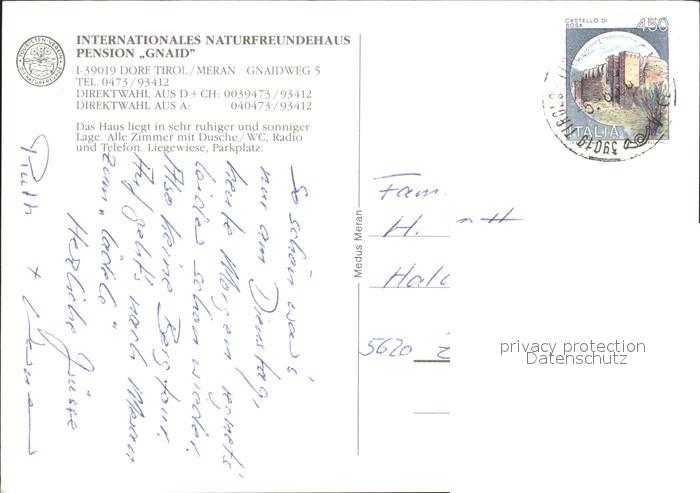 INTERNATIONALES NATURFREUNDEHAUS
PENSION „GNAID”
I-39019 DORF TIROL/MERAN - GNAIDWEG 5
TEL. 0473/93412
DIREKTWAHL AUS D + CH: 0039473/93412
DIREKTWAHL AUS A: 040473/93412
Das Haus liegt in sehr ruhiger und sonniger
Lage. Alle Zimmer mit Dusche/WC, Radio
und Telefon. Liegewiese, Parkplatz.
TOURISTEN-VEREIN
DIE NATURFREUNDE
CASTELLO DI
BOSA
450
ITALIA
39019
So schön war's
nur am Dienstag,
heute Morgen regnet's
leider schon wieder.
Also keine Bergtour.
Auf geht's nach Meran
zum „lädele"
Herzliche Grüsse
Ruth +
Medus Meran
Fam.
H.
5620
privacy protection
Datenschutz